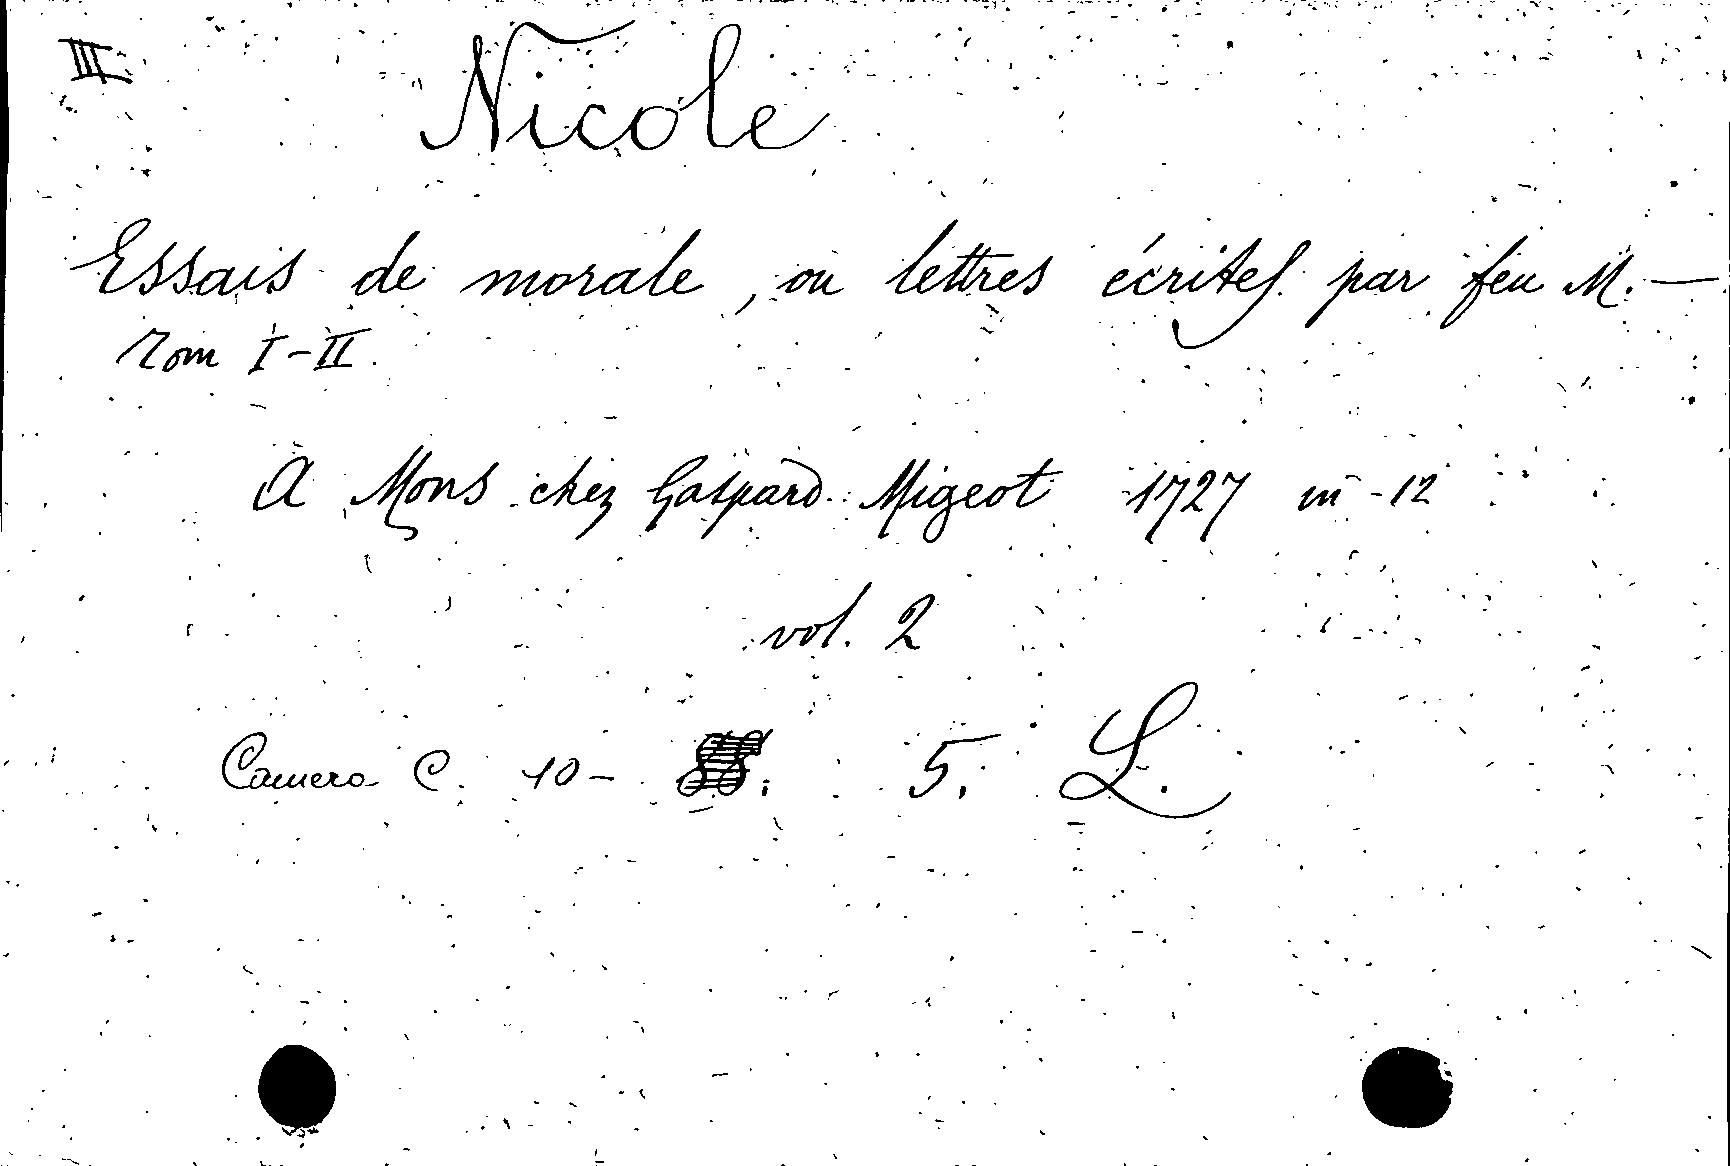 III
Nicole
Essais de morale, ou lettres écrites par feu M. —
Tom I-II.
A Mons chez Gaspard Migeot 1727 in-12
vol. 2
Camera C. 10- 5. L.